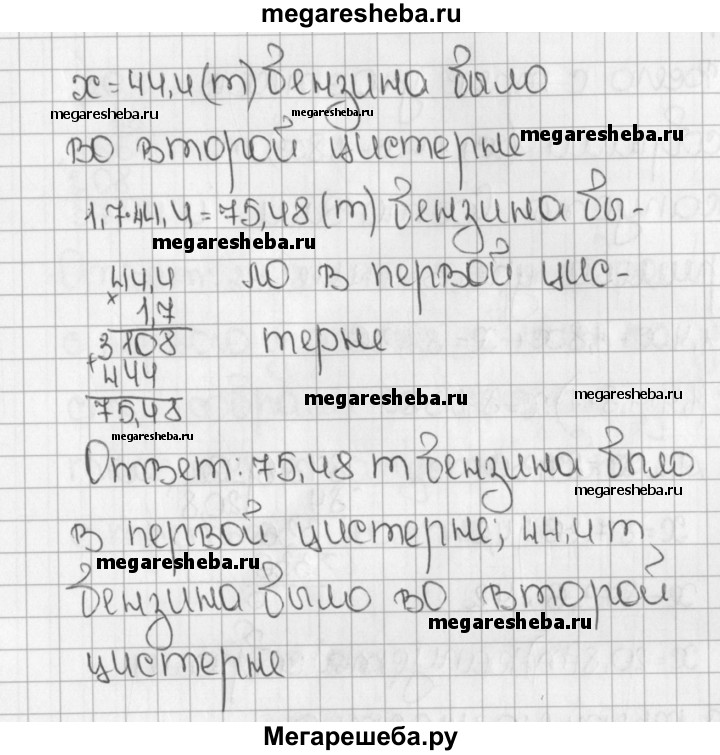 megaresheba.ru
x = 44,4 (т) бензина было
megaresheba.ru
megaresheba.ru
во второй цистерне
megaresheba.ru
1,7·44,4 = 75,48 (т) бензина бы-
megaresheba.ru
44,4 ло в первой цис-
× 1,7
3108 терне
+ 444
megaresheba.ru
megaresheba.ru
75,48
megaresheba.ru
Ответ: 75,48 т бензина было
megaresheba.ru
в первой цистерне; 44,4 т
megaresheba.ru
бензина было во второй
megaresheba.ru
цистерне
Мегарешеба.ру